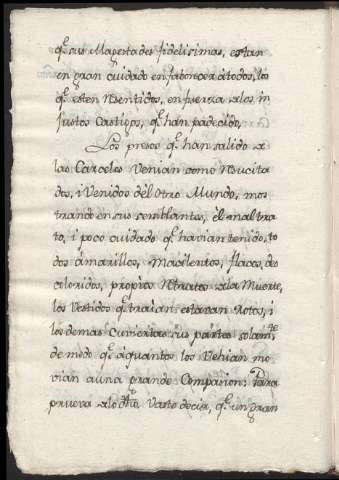 q.e sus Magestades fidelisimas, estan
en gran cuidado en faborecer átodos, los
q.e esten Resentidos, en fuerza de los in
justos Castigos, q.e han padecido.
Los presos q.e han salido de
las Carceles Venian como Resucita
dos, i Venidos del Otro Mundo, mos
trando en sus semblantes, él maltra
to, i poco cuidado q.e havian tenido, to
dos ámarillos, Macilentos, flacos, des
coloridos, propios Retratos de la Muerte,
los Vestidos q.e traian estavan Rotos, i
los demas Cuviertas sus partes solam.te
de modo q.e áquantos los Vehian mo
vian a una grande Compasion: Para
prueva de lo dho, Vaste decir, q.e un gran